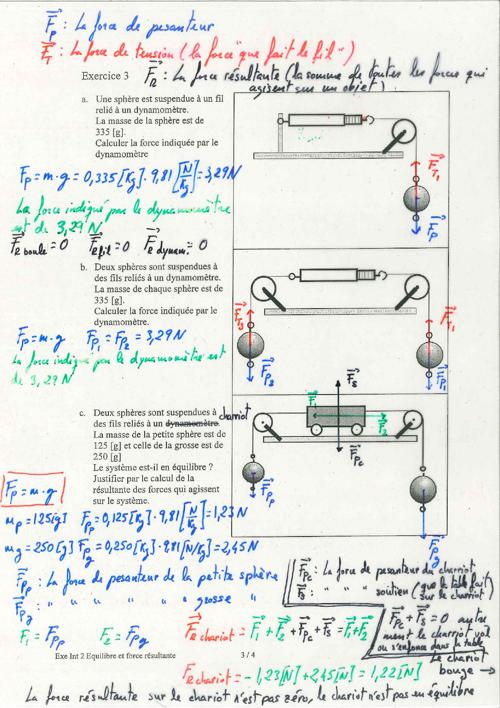 F⃗p : La force de pesanteur
F⃗T : La force de tension (la force "que fait le fil")
Exercice 3
F⃗R : La force résultante (la somme de toutes les forces qui
agissent sur un objet)
a. Une sphère est suspendue à un fil
relié à un dynamomètre.
La masse de la sphère est de
335 [g].
Calculer la force indiquée par le
dynamomètre
Fp = m·g = 0,335 [Kg] · 9,81 [N/Kg] = 3,29 N
La force indiqué par le dynamomètre
est de 3,29 N
F⃗R boule = 0 F⃗R fil = 0 F⃗R dynam. = 0
F⃗T1
F⃗p
b. Deux sphères sont suspendues à
des fils reliés à un dynamomètre.
La masse de chaque sphère est de
335 [g].
Calculer la force indiquée par le
dynamomètre.
Fp = m·g Fp1 = Fp2 = 3,29 N
La force indiqué par le dynamomètre est
de 3,29 N
F⃗T1
F⃗p2
F⃗p1
c. Deux sphères sont suspendues à
des fils reliés à un dynamomètre. chariot
La masse de la petite sphère est de
125 [g] et celle de la grosse est de
250 [g]
Le système est-il en équilibre ?
Justifier par le calcul de la
résultante des forces qui agissent
sur le système.
F⃗s
F⃗1
F⃗2
F⃗pc
F⃗pp
F⃗pg
Fp = m·g
mp = 125 [g] Fp = 0,125 [Kg] · 9,81 [N/Kg] = 1,23 N
mg = 250 [g] Fpg = 0,250 [Kg] · 9,81 [N/Kg] = 2,45 N
F⃗pp : La force de pesanteur de la petite sphère
F⃗pg : " " " " " grosse "
F⃗pc : La force de pesanteur du charriot
F⃗s : " " " soutien (que la table fait
sur le charriot)
F⃗pc + F⃗s = 0 autre
ment le charriot vol
ou s'enfonce dans la table
F1 = Fpp F2 = Fpg F⃗R chariot = F⃗1 + F⃗2 + F⃗pc + F⃗s = F⃗1 + F⃗2
Exe Int 2 Equilibre et force résultante 3 / 4
Le chariot
bouge →
FR chariot = -1,23 [N] + 2,45 [N] = 1,22 [N]
La force résultante sur le chariot n'est pas zéro, le chariot n'est pas en équilibre